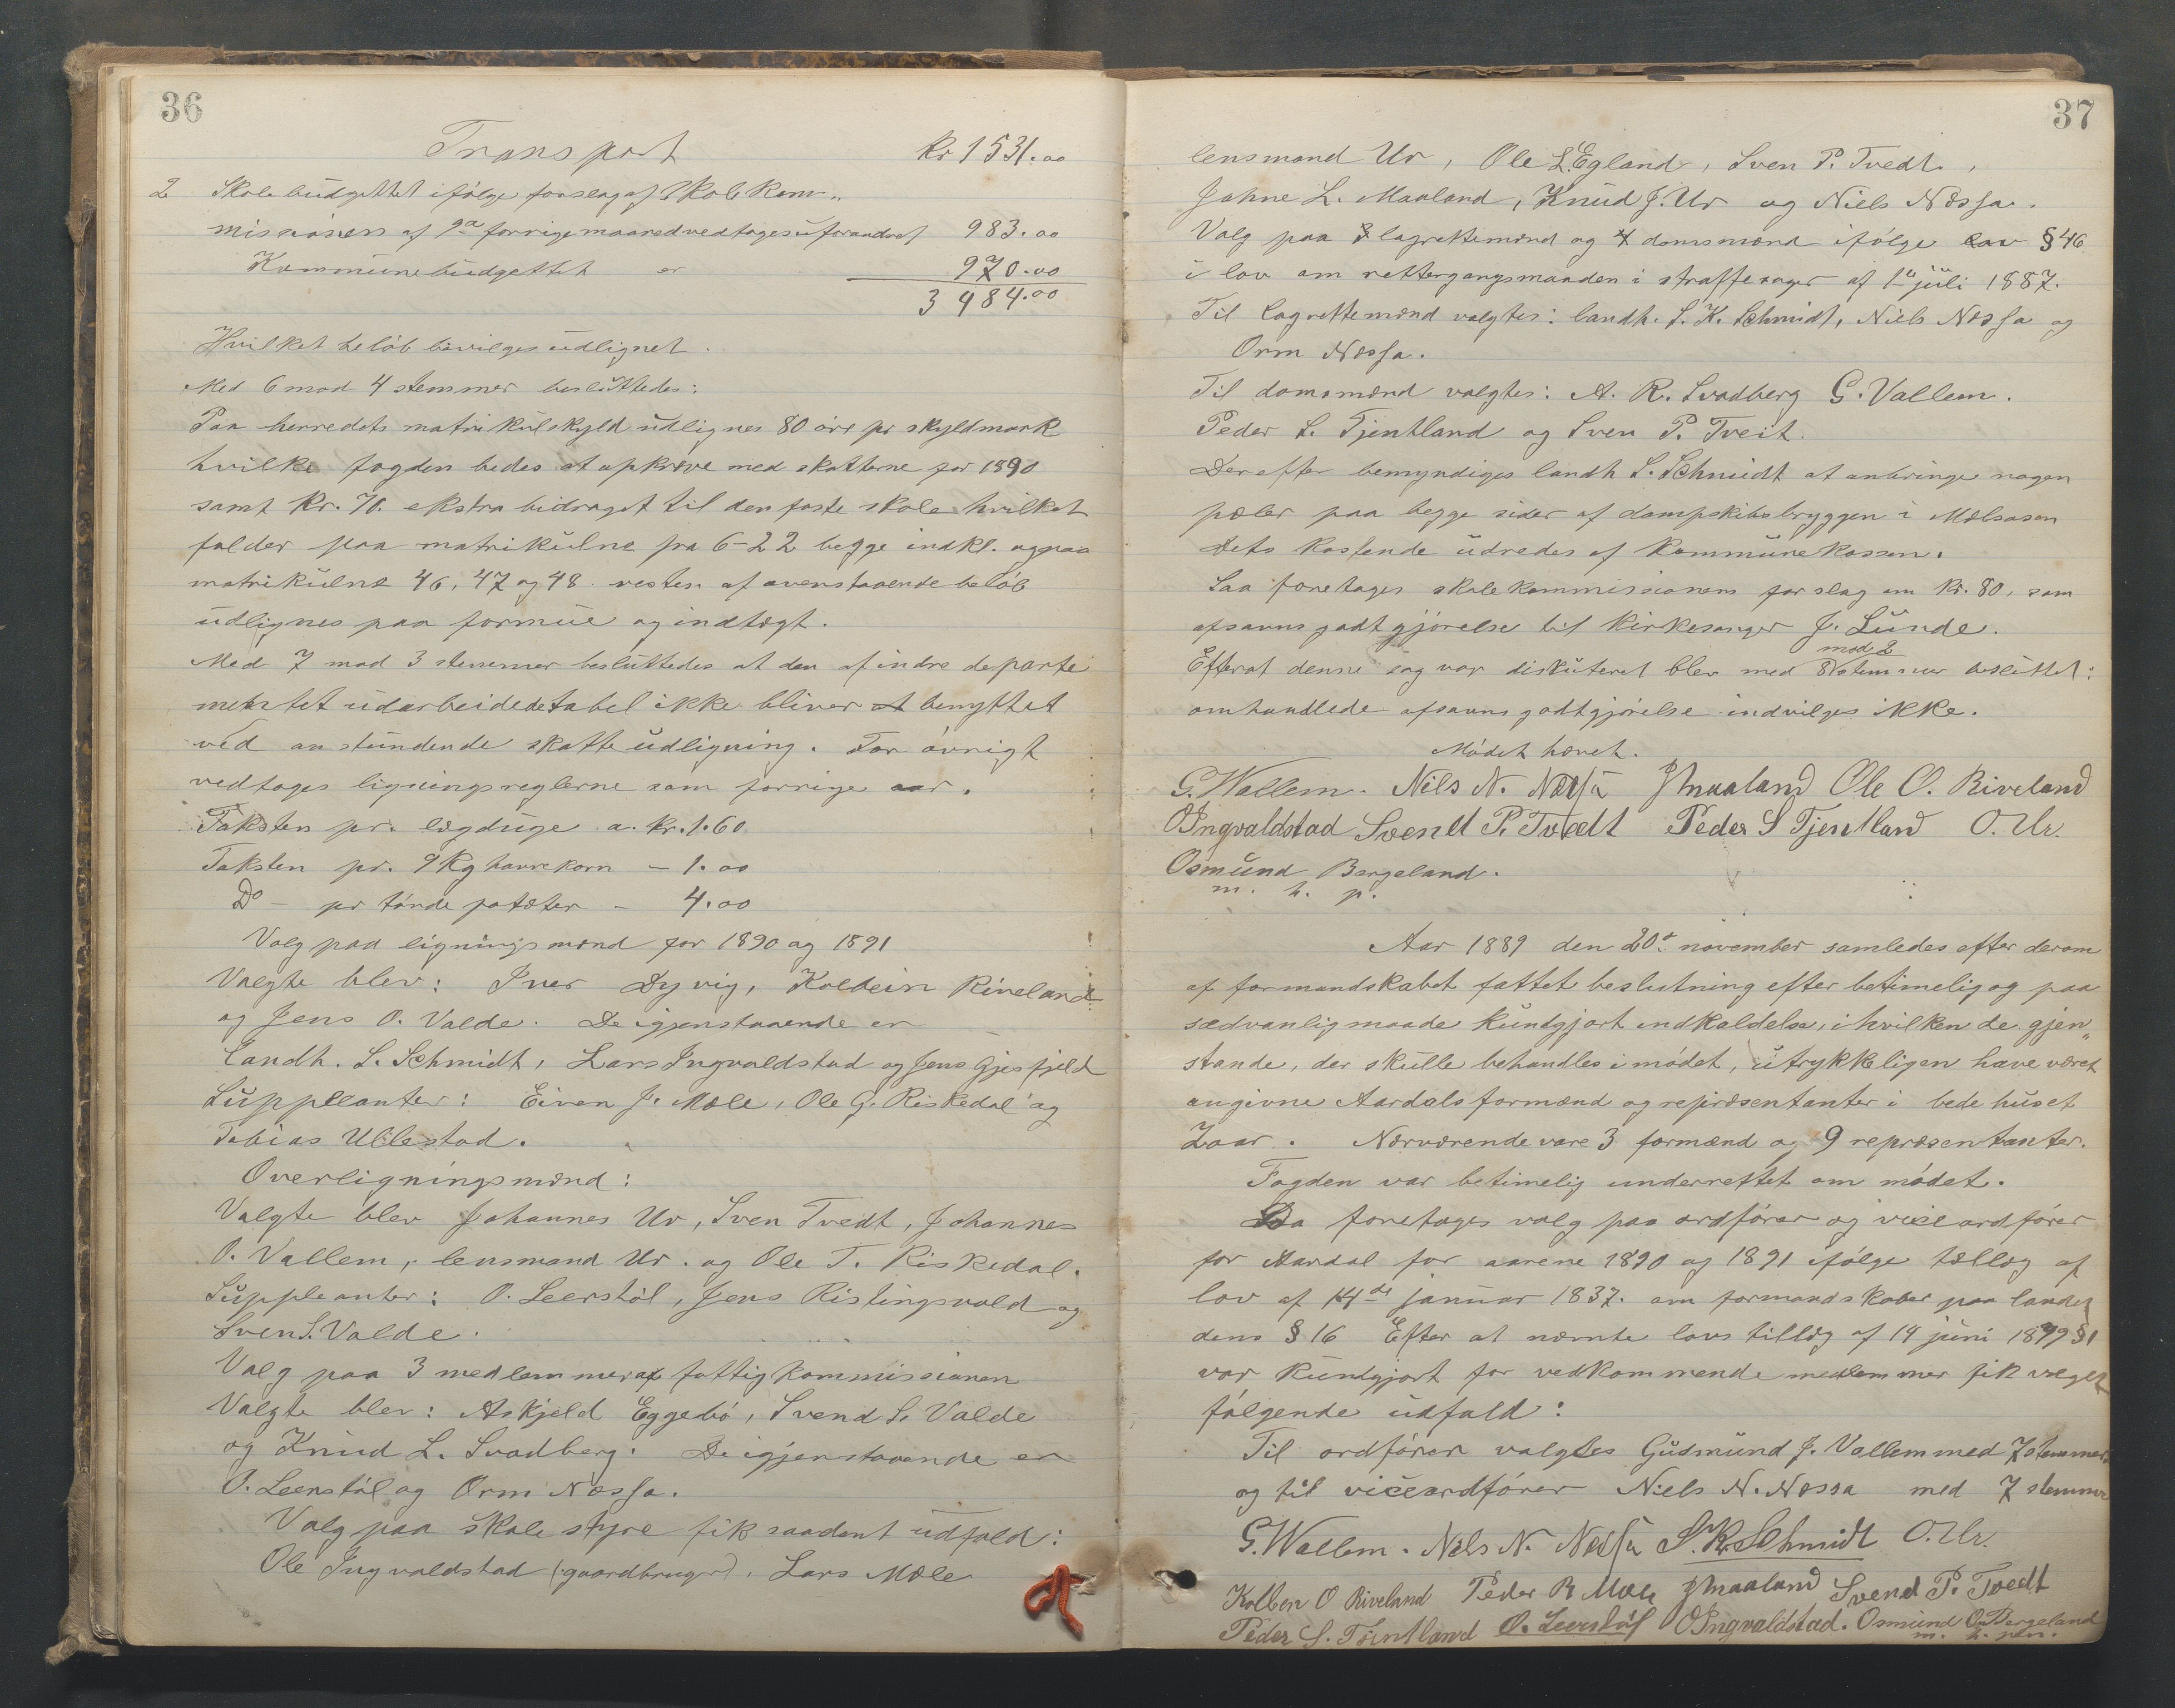 36
Transport kr 1531.00
2 Skolebudgettet ifølge forslag af Skolekom„
missionen af 9a forrige maaned vedtages uforandret 983.00
Kommunebudgettet er 970.00
3484.00
Hvilket beløb bevilges udlignet.
Med 6 mod 4 stemmer besluttedes:
Paa herredets matrikulskyld udlignes 80 øre pr skyldmark
hvilke fogden bedes at opkræve med skatterne for 1890
samt Kr. 70. ekstra bidraget til den faste skole hvilket
falder paa matrikulne fra 6-22 begge indkl. og paa
matrikulne 46, 47 og 48. resten af ovenstaaende beløb
udlignes paa formue og indtægt.
Med 7 mod 3 stemmer besluttedes at den af indre departe
mentet udarbeidede tabel ikke bliver at benyttet
ved anstundende skatteudligning. For øvrigt
vedtages ligningsreglerne som forrige aar.
Taksten pr. lægduge a. kr. 1.60
Taksten pr. 9 Kg havrekorn - 1.00
Do - pr tønde poteter - 4.00
Valg paa ligningsmænd for 1890 og 1891
Valgte blev: Iver Dyvig, Kolbein Riveland
og Jens O. Valde. De igjenstaaende er
landh. S. Schmidt, Lars Ingvaldstad og Jens Gjesfjeld
Suppleanter: Eiven J. Mæle, Ole G. Riskedal og
Tobias Ullestad.
Overligningsmænd:
Valgte blev Johannes Ur, Sven Tvedt, Johannes
O. Vallem, lensmand Ur. og Ole T. Riskedal.
Suppleanter: O. Leerstøl, Jens Ristingsvold og
Sven S. Valde.
Valg paa 3 medlemmer af fattigkommissionen
Valgte blev: Askjeld Eggebø, Svend S. Valde
og Knud L. Svadberg. De igjenstaaende er
O. Leerstøl og Orm Næssa.
Valg paa skolestyre fik saadant udfald:
Ole Ingvaldstad (gaardbruger), Lars Mæle
37
lensmand Ur, Ole L. Egland, Sven P. Tvedt,
Johne L. Maaland, Knud J. Ur og Niels Næssa.
Valg paa 3 lagrettemænd og 4 domsmænd ifølge lov § 46
i lov om rettergangsmaaden i straffesager af 1ste juli 1887.
Til lagrettemænd valgtes: landh. S. K. Schmidt, Niels Næssa og
Orm Næssa.
Til domsmænd valgtes: A. R. Svadberg G. Vallem.
Peder S. Tjentland og Sven P. Tveit.
Derefter bemyndiges landh S. Schmidt at anbringe nogen
pæler paa begge sider af dampskibsbryggen i Mælsosen
Dets kostende udredes af kommunekassen.
Saa foretages skolekommissionens forslag om kr. 80, som
afsavnsgodtgjørelse til kirkesanger J. Lunde.
Efterat denne sag var diskuteret blev med 8 mod 2 stemmer besluttet:
omhandlede afsavnsgodtgjørelse indvilges ikke.
Mødet hævet.
G. Wallem. Nils N. Næssa J Maaland Ole O. Riveland
O Ingvaldstad Svend P. Tvedt Peder S Tjentland O. Ur.
Osmund Bergeland.
m. h. p.
Aar 1889 den 20de november samledes efter derom
af formandskabet fattet beslutning efter betimelig og paa
sædvanlig maade kundgjort indkaldelse, i hvilken de gjen„
stande, der skulle behandles i mødet, utrykkeligen have været
angivne Aardals formænd og repræsentanter i bedehuset
Zoar. Nærværende vare 3 formænd og 9 repræsentanter.
Fogden var betimelig underrettet om mødet.
Da foretages valg paa ordfører og viceordfører
for Aardal for aarene 1890 og 1891 ifølge tællæg af
lov af 14de januar 1837. om formandskaber paa landet
dens § 16 Efter at nævnte lovs tillæg af 14 juni 1879 § 1
var kundgjort for vedkommende medlemmer fik valget
følgende udfald:
Til ordfører valgtes Gudmund J. Vallem med 7 stemmer
og til viceordfører Niels N. Næssa med 7 stemmer
G. Wallem. Nils N. Næssa S. K. Schmidt O. Ur.
Kolben O Riveland Peder R Mæle J Maaland Svend P. Tvedt
Peder S. Tjentland O. Leerstøl O Ingvaldstad. Osmund O Bergeland
m. h. pen.